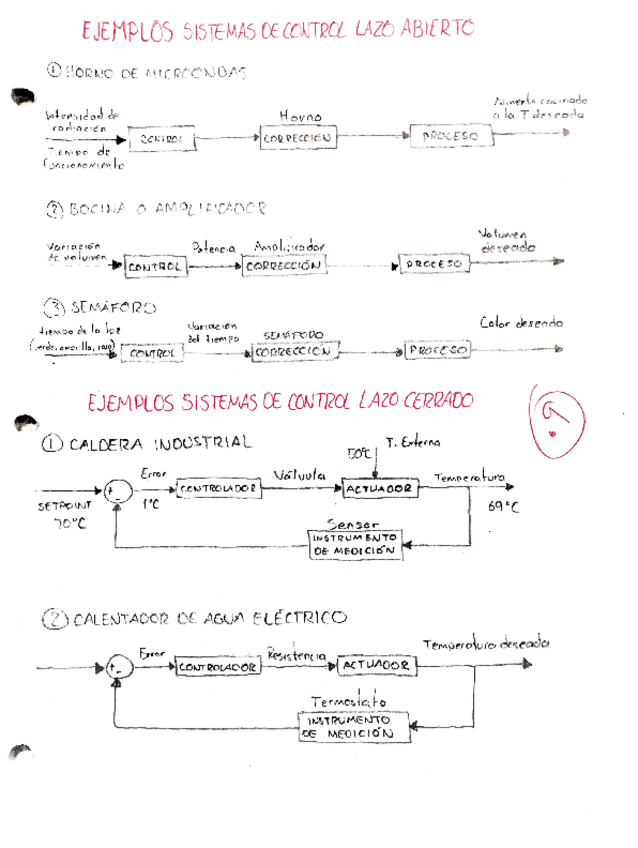 EJEMPLOS SISTEMAS DE CONTROL LAZO ABIERTO
① HORNO DE MICROONDAS
Intensidad de
radiación
Tiempo de
funcionamiento
CONTROL
Horno
CORRECCIÓN
PROCESO
Alimento cocinado
a la T deseada
② BOCINA O AMPLIFICADOR
Variación
de volumen
CONTROL
Potencia
Amplificador
CORRECCIÓN
PROCESO
Volumen
deseado
③ SEMÁFORO
tiempo de la luz
(verde, amarilla, roja)
CONTROL
Variación
del tiempo
SEMÁFORO
CORRECCIÓN
PROCESO
Color deseado
EJEMPLOS SISTEMAS DE CONTROL LAZO CERRADO
① CALDERA INDUSTRIAL
SETPOINT
70°C
+
-
Error
1°C
CONTROLADOR
Válvula
50°C
T. Externa
ACTUADOR
Temperatura
69°C
Sensor
INSTRUMENTO
DE MEDICIÓN
② CALENTADOR DE AGUA ELÉCTRICO
+
-
Error
CONTROLADOR
Resistencia
ACTUADOR
Temperatura deseada
Termostato
INSTRUMENTO
DE MEDICIÓN